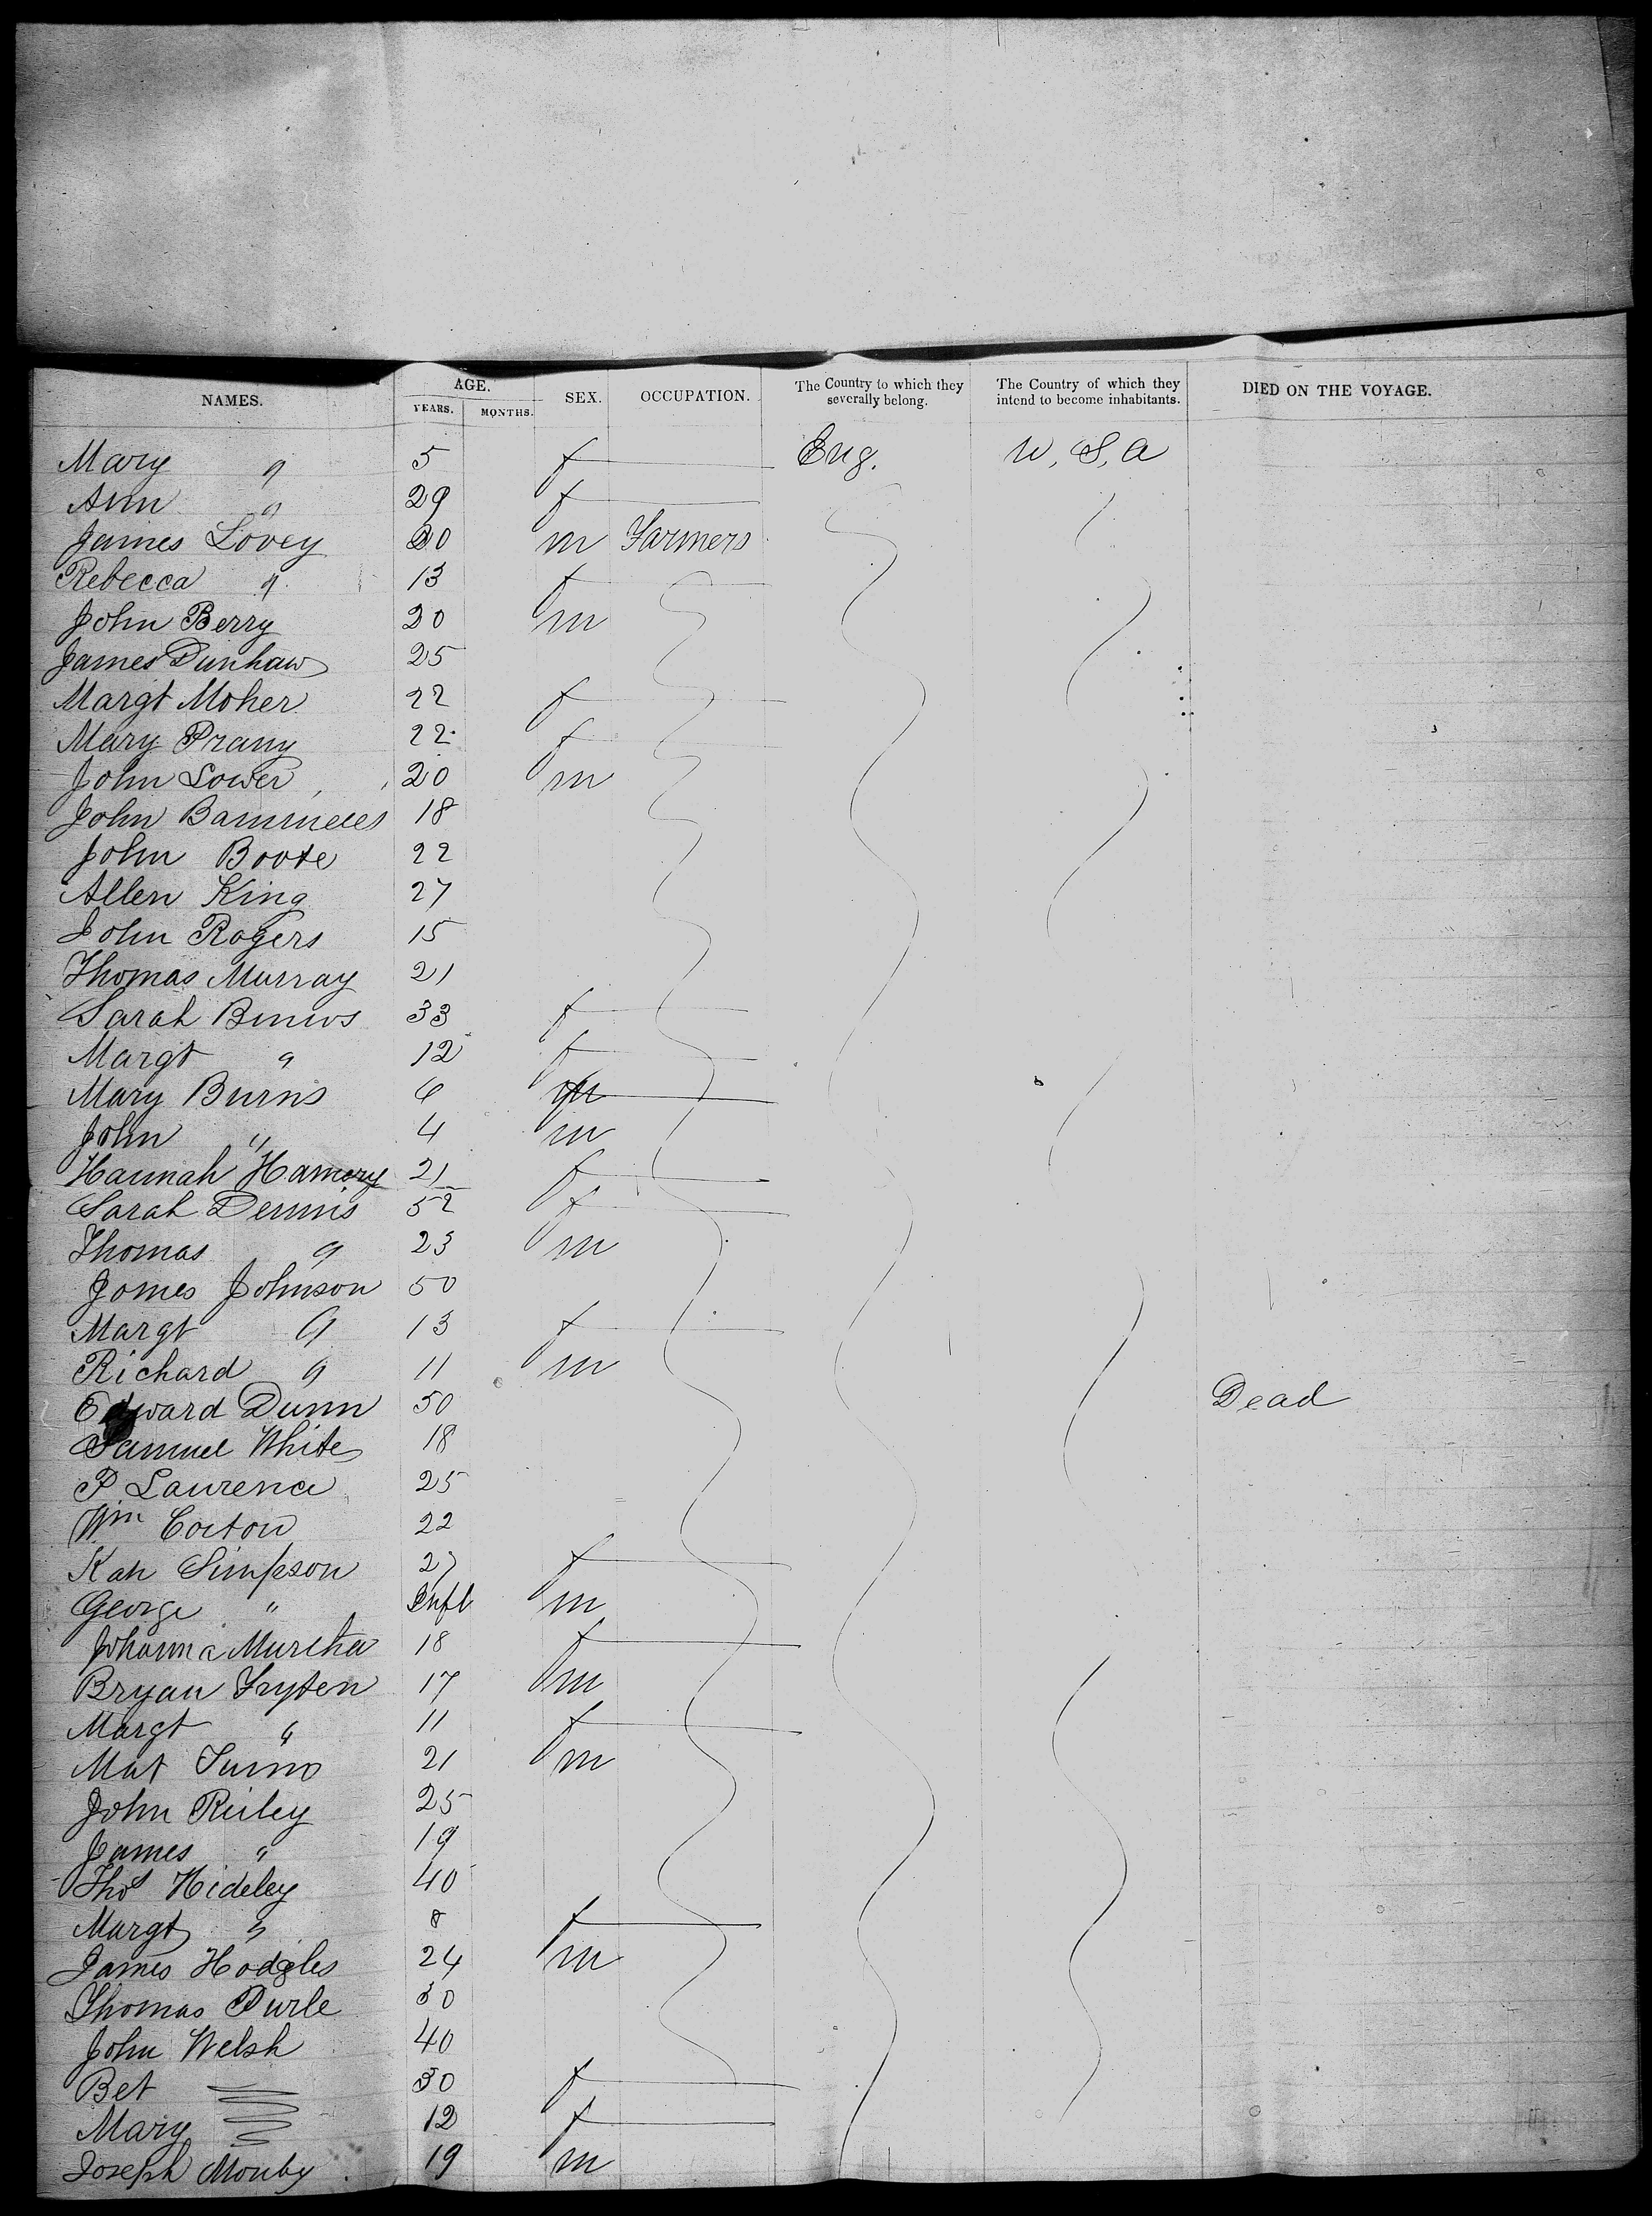 NAMES. AGE. YEARS. MONTHS. SEX. OCCUPATION. The Country to which they severally belong. The Country of which they intend to become inhabitants. DIED ON THE VOYAGE.
Mary " 5 f Eng. U,S,A
Ann " 29 f
James Lovey 30 m Farmers
Rebecca " 13 f
John Berry 20 m
James Dunhaw 25
Margt Moher 22 f
Mary Prany 22 f
John Lower 20 m
John 18
John Boote 22
Allen King 27
John Rogers 15
Thomas Murray 21
Sarah 33 f
Margt " 12 f
Mary Burns 6
John " 4 m
Hannah Hamory 21 f
Sarah Dennis 52 f
Thomas " 23 m
James Johnson 50
Margt " 13 f
Richard " 11 m
Edward Dunn 50 Dead
Samuel White 18
P Laurence 25
Wm Coston 22
Kah Simpson 27 f
George " Inft m
Johanna Murcha 18 f
Bryan 17 m
Margt " 11 f
Mat 21 m
John Riley 25
James " 19
Thos Hideley 40
Margt " 8 f
James Hodgles 24 m
Thomas Purle 30
John Welsh 40
Bet 30 f
Mary 12 f
Joseph Monby 19 m